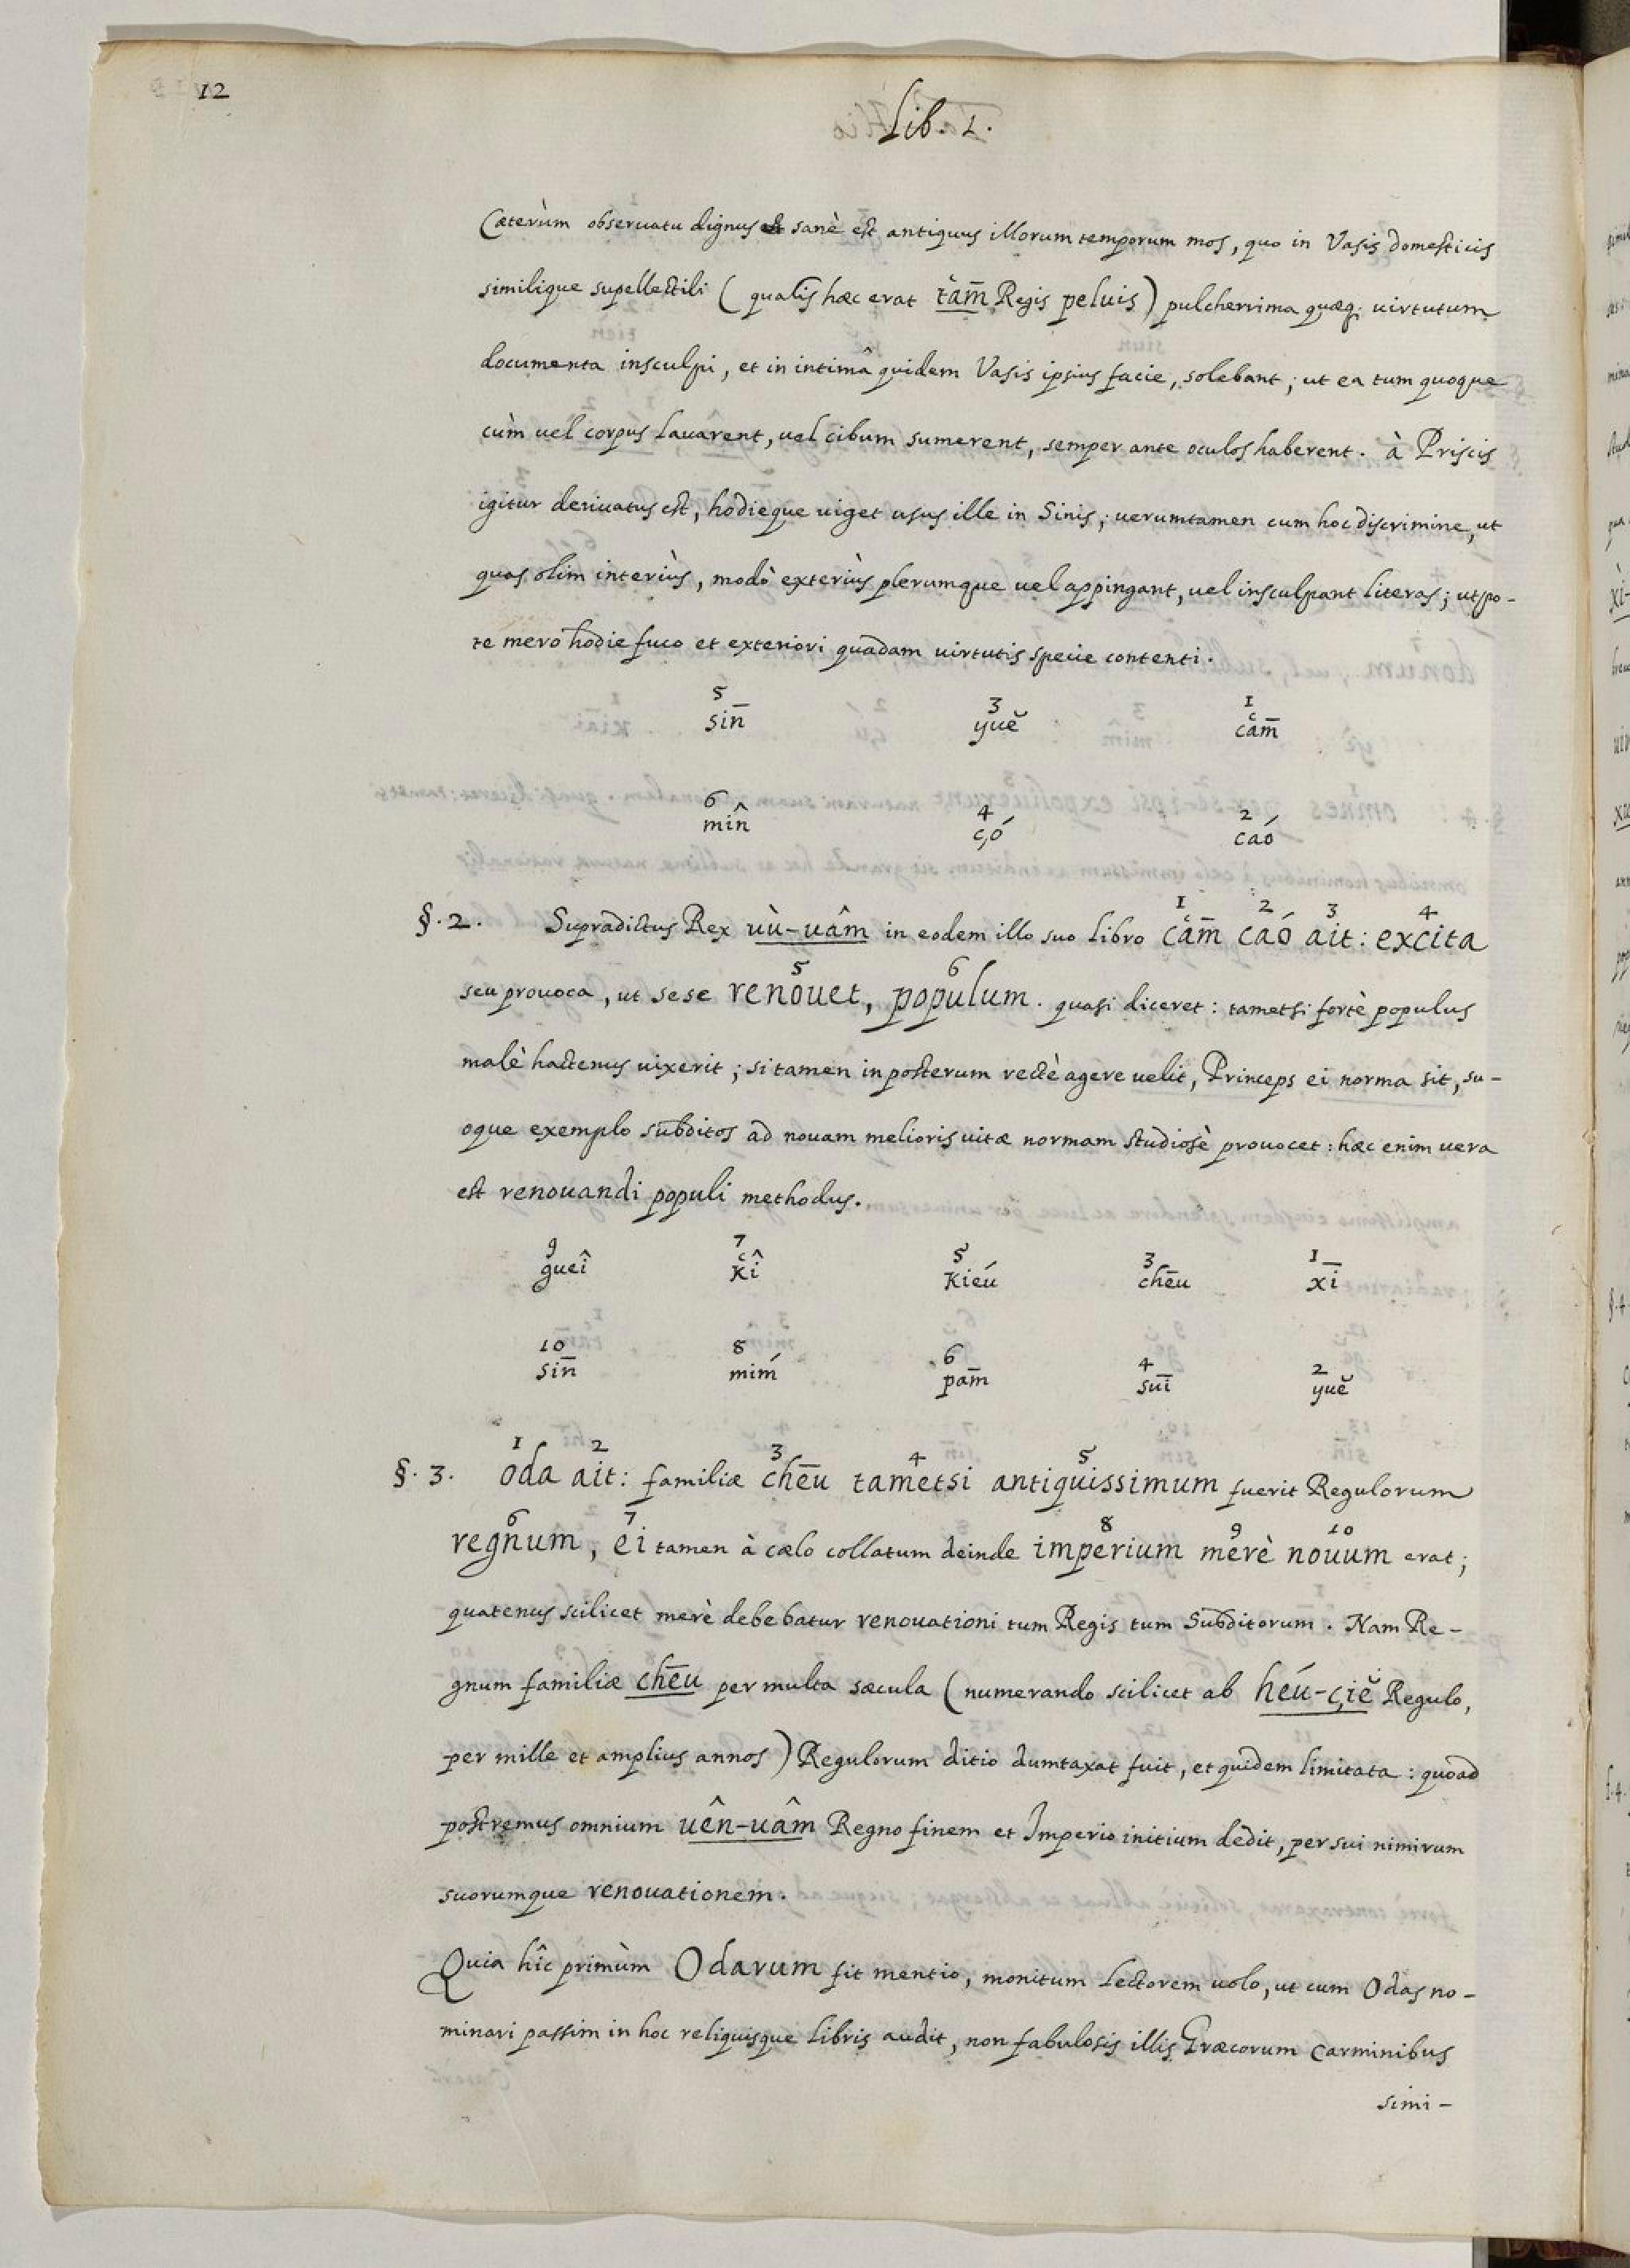 12
Lib. 1.
Cæterùm obseruatu dignus sanè est antiquus illorum temporum mos, quo in Vasis domesticis
similique supellectili (qualis hæc erat tʿām̄ Regis peluis) pulcherrima quæq; uirtutum
documenta insculpi, et in intimâ quidem Vasis ipsius facie, solebant; ut ea tum quoque
cùm uel corpus lauarent, uel cibum sumerent, semper ante oculos haberent. à Priscis
igitur deriuatus est, hodieque uiget usus ille in Sinis; uerumtamen cum hoc discrimine, ut
quas olim interiùs, modò exteriùs plerumque uel appingant, uel insculpant literas; utpo-
te mero hodie fuco et exteriori quadam uirtutis specie contenti.
5 3 1
sin̄ yuĕ cʿam̄
6 4 2
min̂ çó caó
1 2 3 4
§. 2. Supradictus Rex ùu-uâm in eodem illo suo libro cʿam̄ caó ait: excita
5 6
seu prouoca, ut sese renouet, populum. quasi diceret: tametsi fortè populus
malè hactenus uixerit; si tamen in posterum rectè agere uelit, Princeps ei norma sit, su-
oque exemplo subditos ad nouam melioris uitæ normam studiosè prouocet: hæc enim uera
est renouandi populi methodus.
9 7 5 3 1
gueî kʿî kieú chēu xī
10 8 6 4 2
sin̄ miḿ pam̄ suī yuĕ
1 2 3 4 5
§. 3. Oda ait: familiæ chēu tametsi antiquissimum fuerit Regulorum
6 7 8 9 10
regnum, ei tamen à cælo collatum deinde imperium merè nouum erat;
quatenus scilicet merè debebatur renouationi tum Regis tum Subditorum. Nam Re-
gnum familiæ chēu per multa sæcula (numerando scilicet ab héu-çiĕ Regulo,
per mille et amplius annos) Regulorum ditio dumtaxat fuit, et quidem limitata: quoad
postremus omnium uên-uâm Regno finem et Imperio initium dedit, per sui nimirum
suorumque renouationem.
Quia hîc primùm Odarum fit mentio, monitum Lectorem uolo, ut cum Odas no-
minari passim in hoc reliquisque libris audit, non fabulosis illis Græcorum Carminibus
simi-